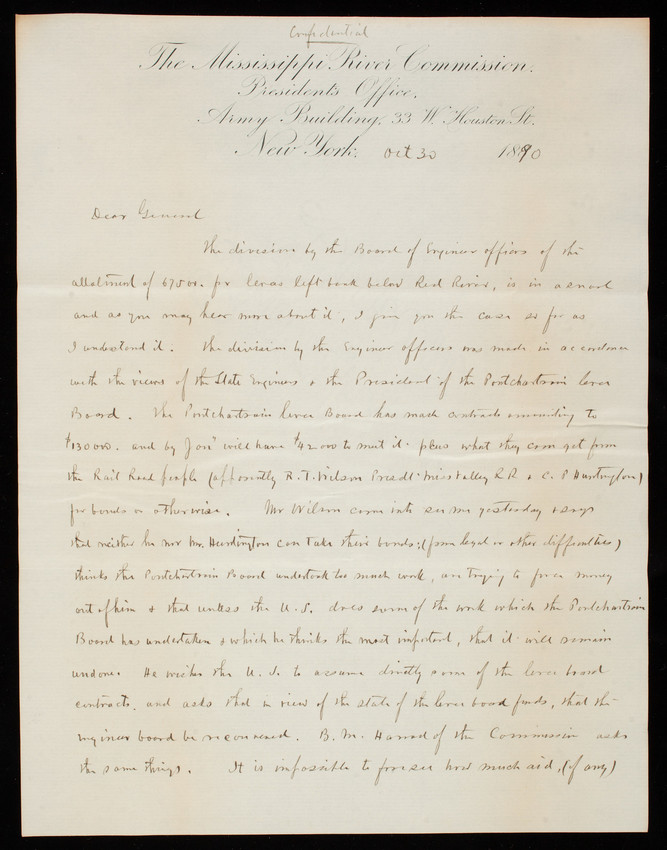 Confidential
The Mississippi River Commission.
Presidents Office.
Army Building, 33 W. Houston St.
New York. Oct 30 1890
Dear General
the division by the Board of Engineer officers of the
allotment of 67500. for levees left bank below Red River, is in
and as you may hear more about it, I give you the case so far as
I understand it. The division by the Engineer officers was made in accordance
with the views of the State Engineers & the President of the Pontchartrain levee
Board. The Pontchartrain levee Board has made contracts amounting to
$130000. and by Jany will have $42000 to meet it plus what they can get from
the Rail Road people (apparently R. T. Wilson Presdt Miss Valley RR & C. P Huntington)
for bonds or otherwise. Mr Wilson came into see me yesterday & says
that neither he nor Mr. Huntington can take their bonds; (from legal or other difficulties)
thinks the Pontchartrain Board undertook too much work, are trying to force money
out of him & that unless the U.S. does some of the work which the Pontchartrain
Board has undertaken & which he thinks the most important, that it will remain
undone. He wishes the U.S. to assume directly some of the levee board
contracts. and asks that in view of the state of the levee board funds, that the
engineer board be reconvened. B. M. Harrod of the Commission asks
the same things. It is impossible to foresee how much aid, (if any)